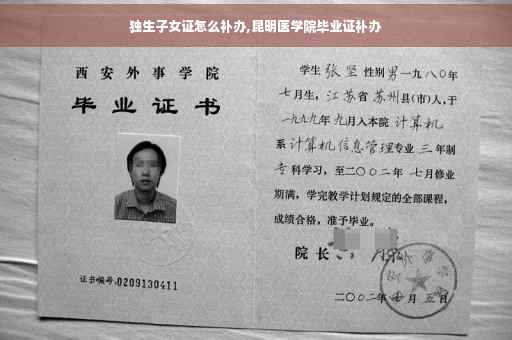 独生子女证怎么补办,昆明医学院毕业证补办
西安外事学院
毕业证书
证书编号:0209130411
学生 张坚 性别 男 一九八〇年
七月生, 江苏省 苏州县(市)人,于
一九九九年 九月入本院 计算机
系 计算机信息管理专业 三 年制
专 科学习, 至二〇〇二年 七月修业
期满, 学完教学计划规定的全部课程,
成绩合格, 准予毕业。
院长
二〇〇二年 七 月 五 日